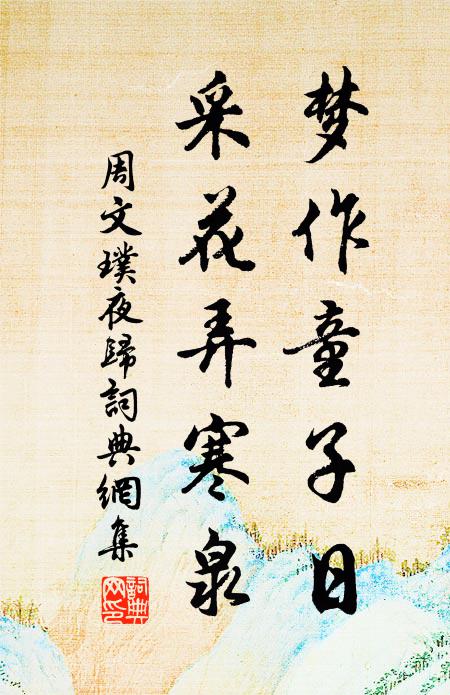 梦作童子日
采花弄寒泉
周文璞夜歸詞典網集
詞典网印